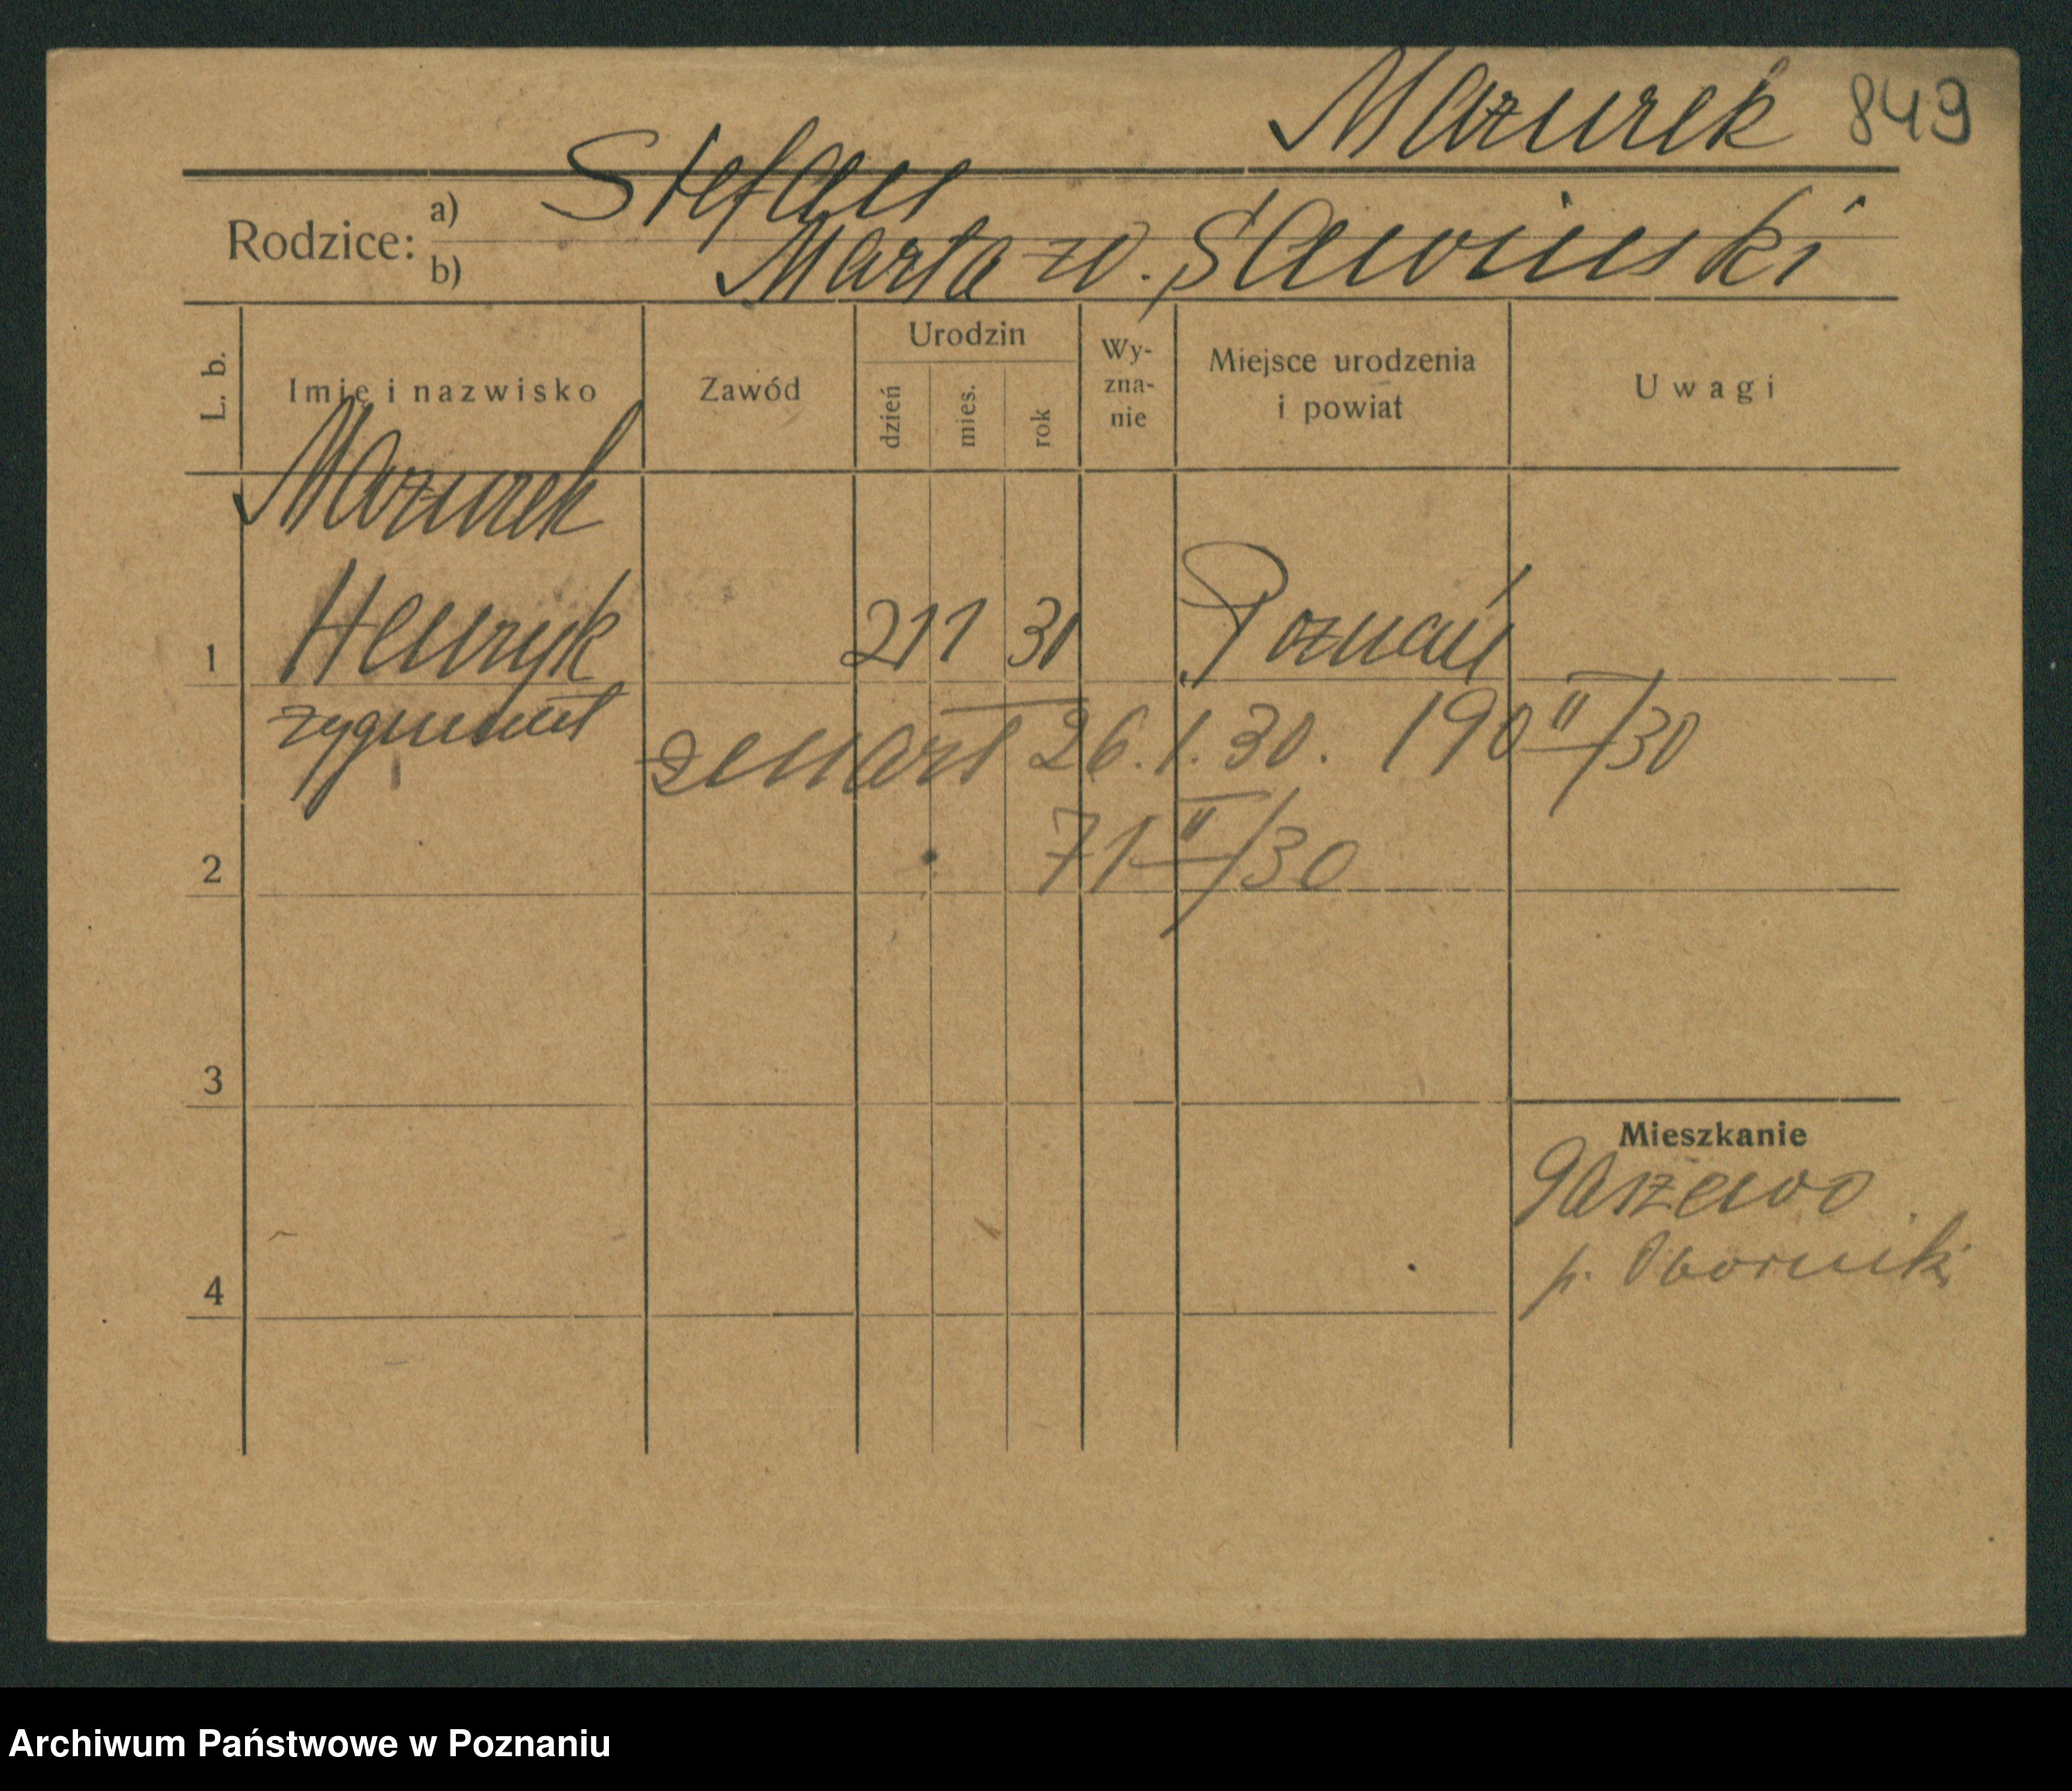 Mazurek 849
Rodzice: a) Stefan
b) Marta zd. Sławinski
L. b.
Imię i nazwisko
Zawód
Urodzin
dzień
mies.
rok
Wy-
zna-
nie
Miejsce urodzenia
i powiat
Uwagi
Mazurek
1 Henryk 21 1 30 Poznań
Zygmunt
zmarł 26.1.30. 190 II/30
71 II/30
2
3
Mieszkanie
p. Oborniki
4
Archiwum Państwowe w Poznaniu